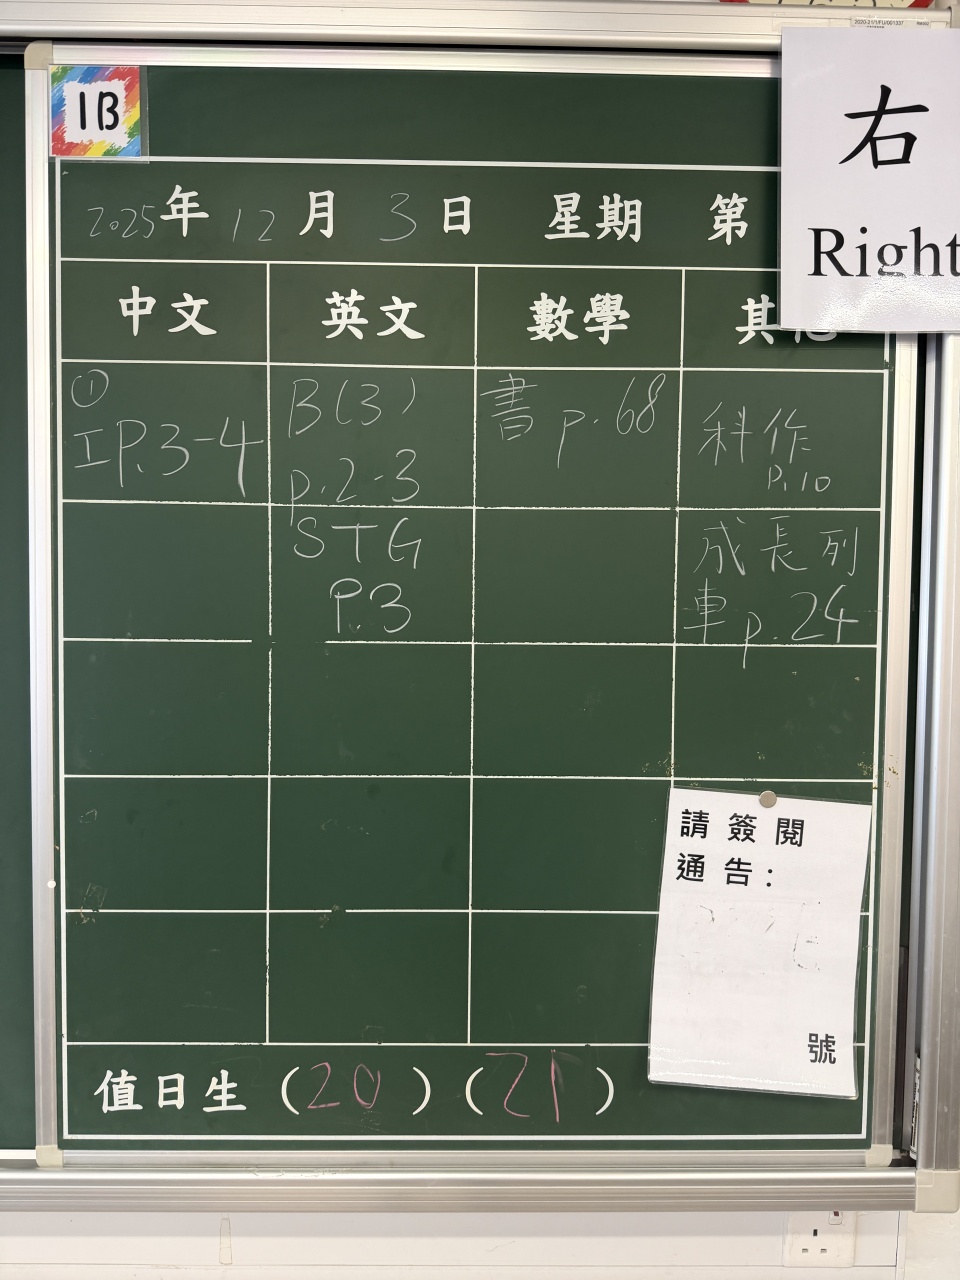 2020-21/1/FU/001337
1B
右
Right
2025年 12月 3日 星期 第
中文 英文 數學 其他
①
工P.3-4
B(3)
p.2-3
STG
P.3
書 p.68
科作
P.10
成長列
車 p.24
請簽閱
通告：
號
值日生 (20) (21)